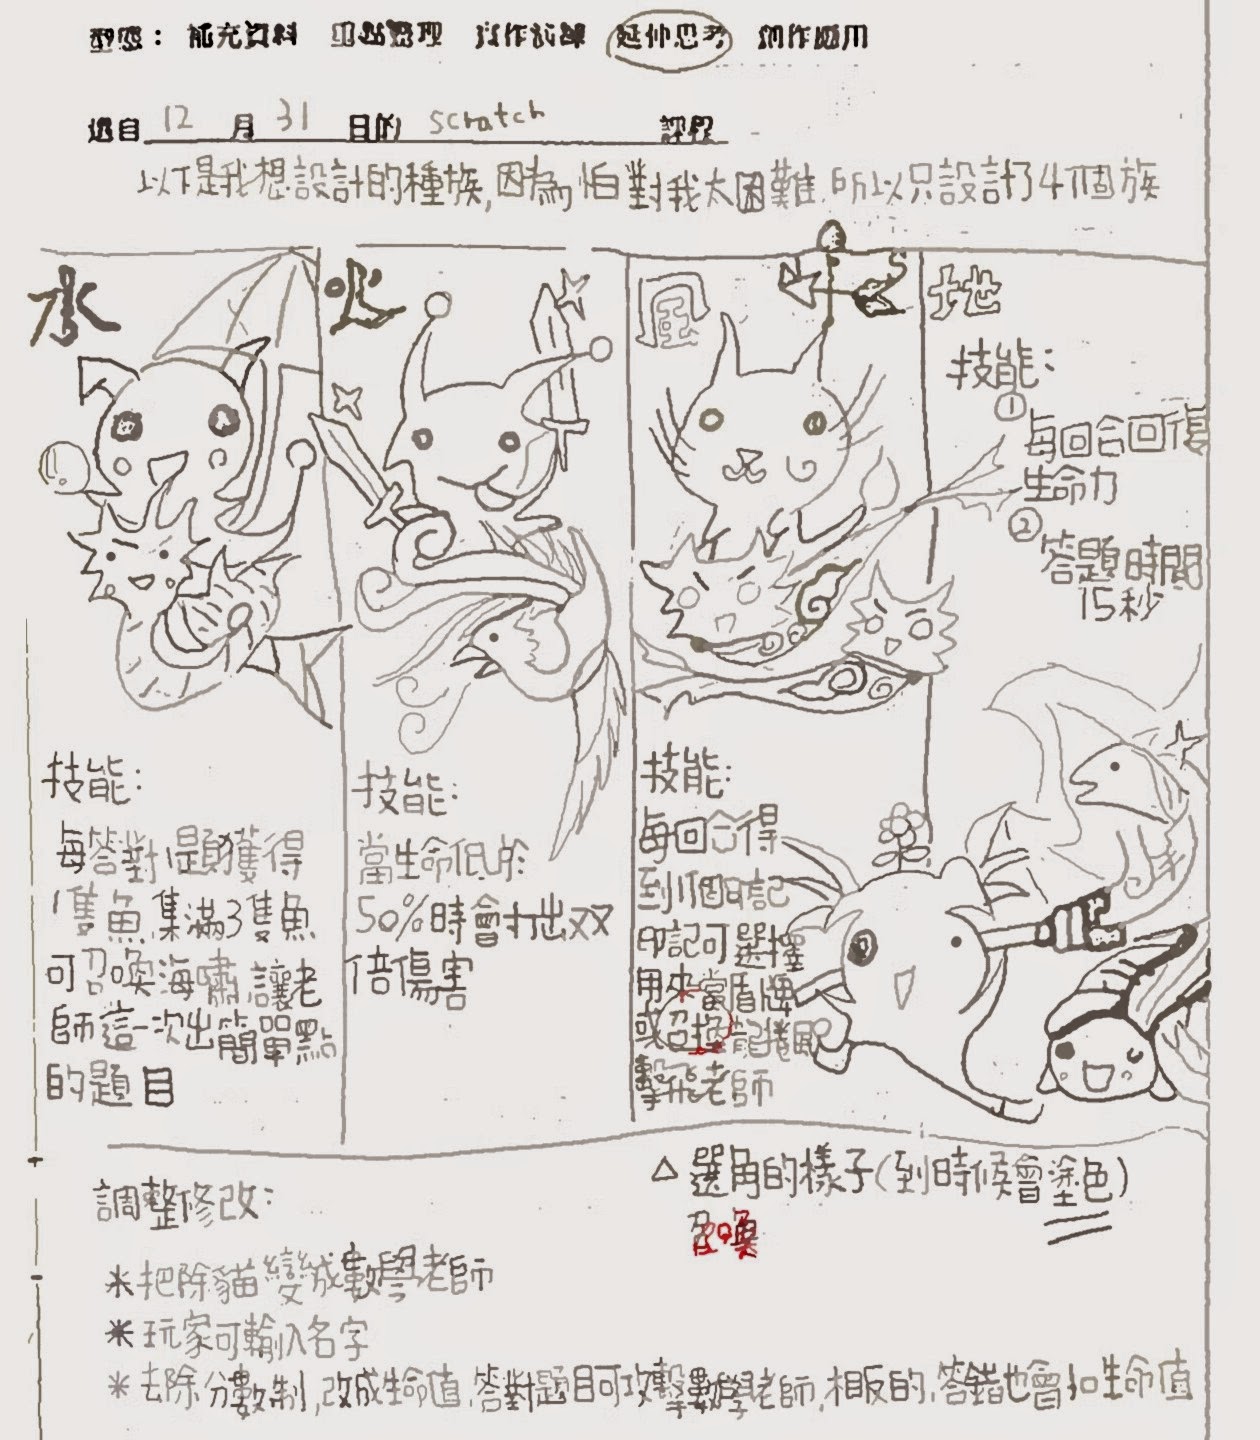 型態： 補充資料 重點整理 實作試課 延伸思考 創作應用
週自 12 月 31 日的 scratch 課程
以下是我想設計的種族,因為怕對我太困難,所以只設計了4個族
水
火
風
地
技能：
① 每回合回復
生命力
② 答題時間
15秒
技能：
每答對1題獲得
1隻魚,集滿3隻魚
可召喚海嘯,讓老
師這一次出簡單點
的題目
技能：
當生命低於
50%時會打出双
倍傷害
技能：
每回合得
到1個印記
印記可選擇
用來當盾牌
或召換龍捲風
擊飛老師
△ 選角的樣子(到時候會塗色)
召喚
調整修改：
*把除貓變成數學老師
*玩家可輸入名字
*去除分數制,改成生命值,答對題目可攻擊數學老師,相反的,答錯也會扣生命值